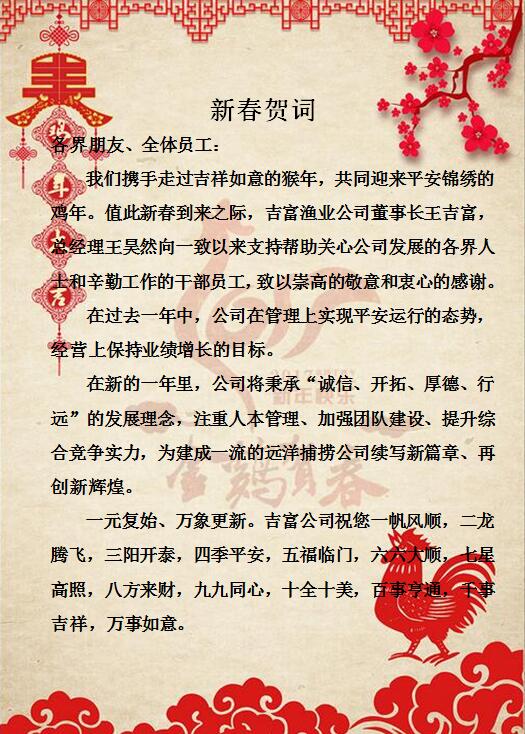 新春贺词
各界朋友、全体员工：
我们携手走过吉祥如意的猴年，共同迎来平安锦绣的
鸡年。值此新春到来之际，吉富渔业公司董事长王吉富，
总经理王昊然向一致以来支持帮助关心公司发展的各界人
士和辛勤工作的干部员工，致以崇高的敬意和衷心的感谢。
在过去一年中，公司在管理上实现平安运行的态势，
经营上保持业绩增长的目标。
在新的一年里，公司将秉承“诚信、开拓、厚德、行
远”的发展理念，注重人本管理、加强团队建设、提升综
合竞争实力，为建成一流的远洋捕捞公司续写新篇章、再
创新辉煌。
一元复始、万象更新。吉富公司祝您一帆风顺，二龙
腾飞，三阳开泰，四季平安，五福临门，六六大顺，七星
高照，八方来财，九九同心，十全十美，百事亨通，千事
吉祥，万事如意。
鸡年大吉
2017
新年快乐
金鸡贺春